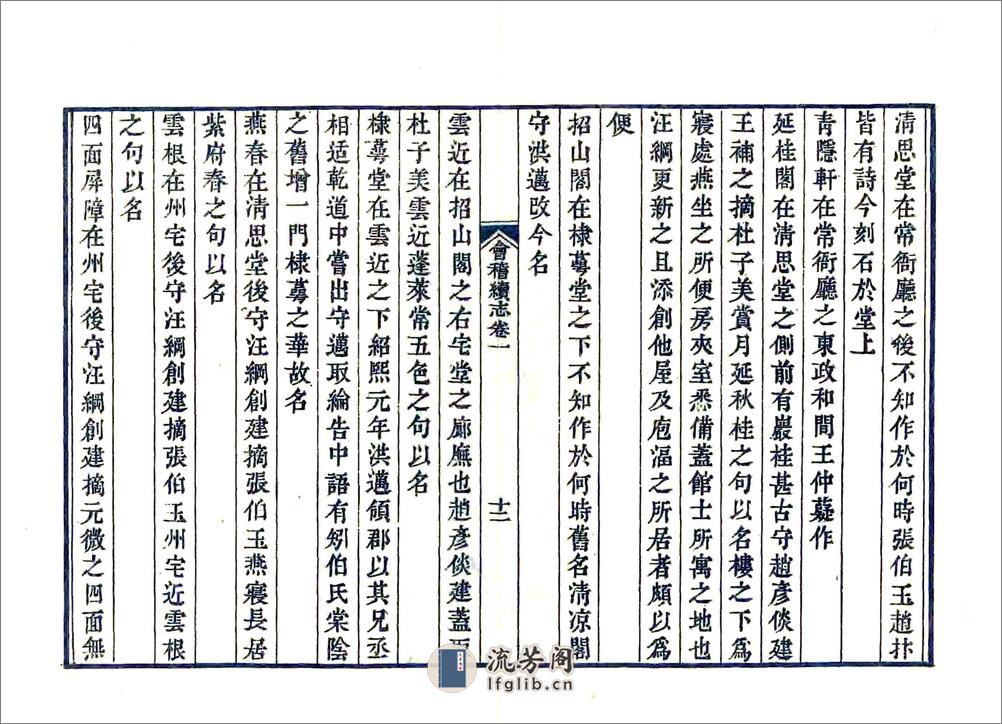 清思堂在常衙廳之後不知作於何時張伯玉趙抃
皆有詩今刻石於堂上
青隱軒在常衙廳之東政和間王仲薿作
延桂閣在清思堂之側前有巖桂甚古守趙彥倓建
王補之摘杜子美賞月延秋桂之句以名樓之下爲
寢處燕坐之所便房夾室悉備蓋館士所寓之地也
汪綱更新之且添創他屋及庖湢之所居者頗以爲
便
招山閣在棣萼堂之下不知作於何時舊名清凉閣
守洪邁改今名
會稽續志卷一
十二
雲近在招山閣之右宅堂之廊廡也趙彥倓建蓋
杜子美雲近蓬萊常五色之句以名
棣萼堂在雲近之下紹熙元年洪邁領郡以其兄丞
相适乾道中嘗出守邁取綸告中語有矧伯氏棠陰
之舊增一門棣萼之華故名
燕春在清思堂後守汪綱創建摘張伯玉燕寢長居
紫府春之句以名
雲根在州宅後守汪綱創建摘張伯玉州宅近雲根
之句以名
四面屏障在州宅後守汪綱創建摘元微之四面無
流芳阁
lfglib.cn